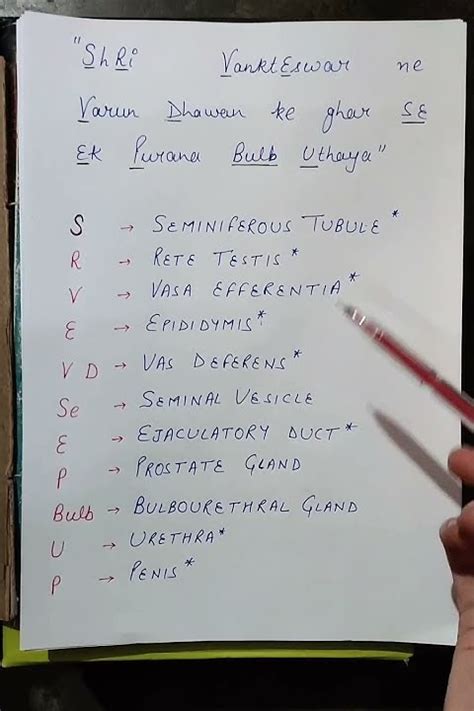 "ShRi VanktEswar ne
Varun Dhawan ke ghar SE
Ek Purana Bulb Uthaya"
S → SEMINIFEROUS TUBULE*
R → RETE TESTIS*
V → VASA EFFERENTIA*
E → EPIDIDYMIS*
V D → VAS DEFERENS*
Se → SEMINAL VESICLE
E → EJACULATORY DUCT*
P → PROSTATE GLAND
Bulb → BULBOURETHRAL GLAND
U → URETHRA*
P → PENIS*